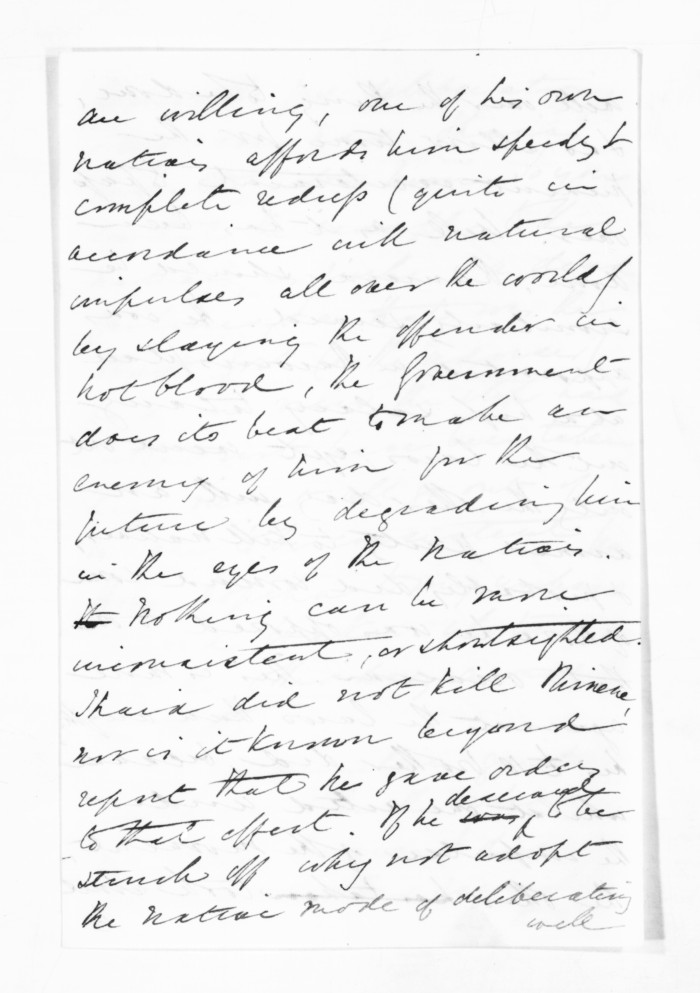 are willing, one of his own
natives affords him speedy &
complete redress (quite in
accordance with natural
impulses all over the world)
by slaying the offender in
hot blood, the Government
does its best to make an
enemy of him for the
future by degrading him
in the eyes of the Natives.
It Nothing can be more
inconsistent, or shortsighted.
Ihaia did not kill
nor is it known beyond
report that he gave orders
to that effect. If he was deserved to be
struck off why not adopt
the native mode of deliberating
well